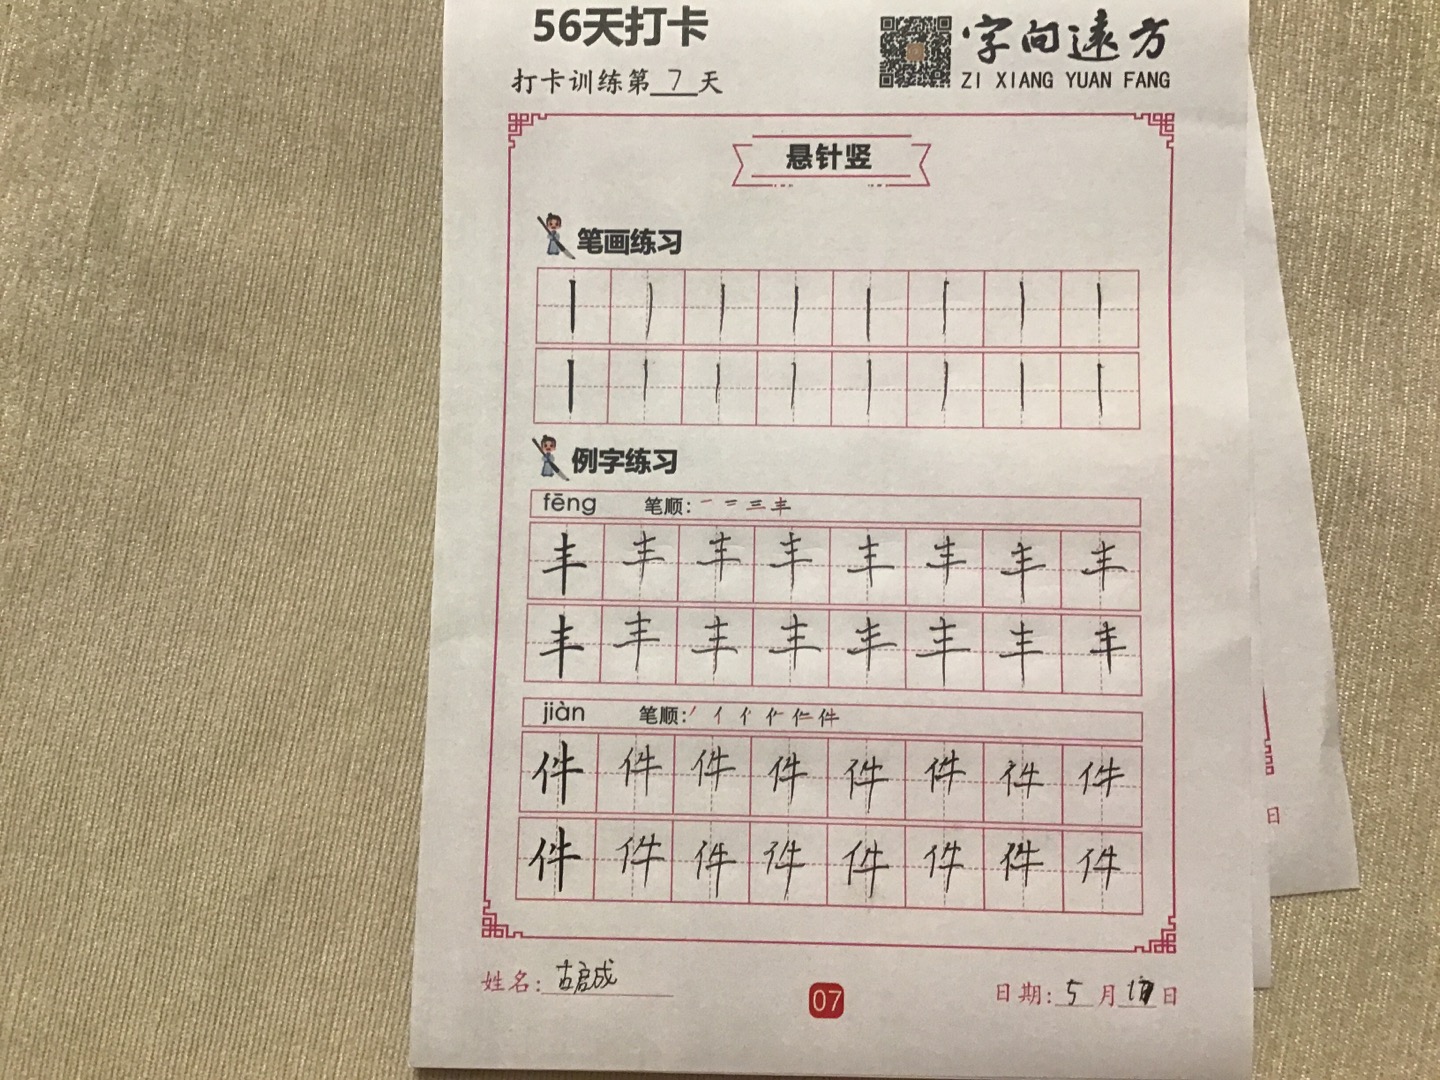 56天打卡
字向远方
打卡训练第7天
ZI XIANG YUAN FANG
悬针竖
笔画练习
丨丨丨丨丨丨丨丨
丨丨丨丨丨丨丨丨
例字练习
fēng 笔顺: 一 二 三 丰
丰丰丰丰丰丰丰丰
丰丰丰丰丰丰丰丰
jiàn 笔顺: 丿 亻 亻 亻 仁 件
件件件件件件件件
件件件件件件件件
姓名: 古启成
07
日期: 5月 日
日